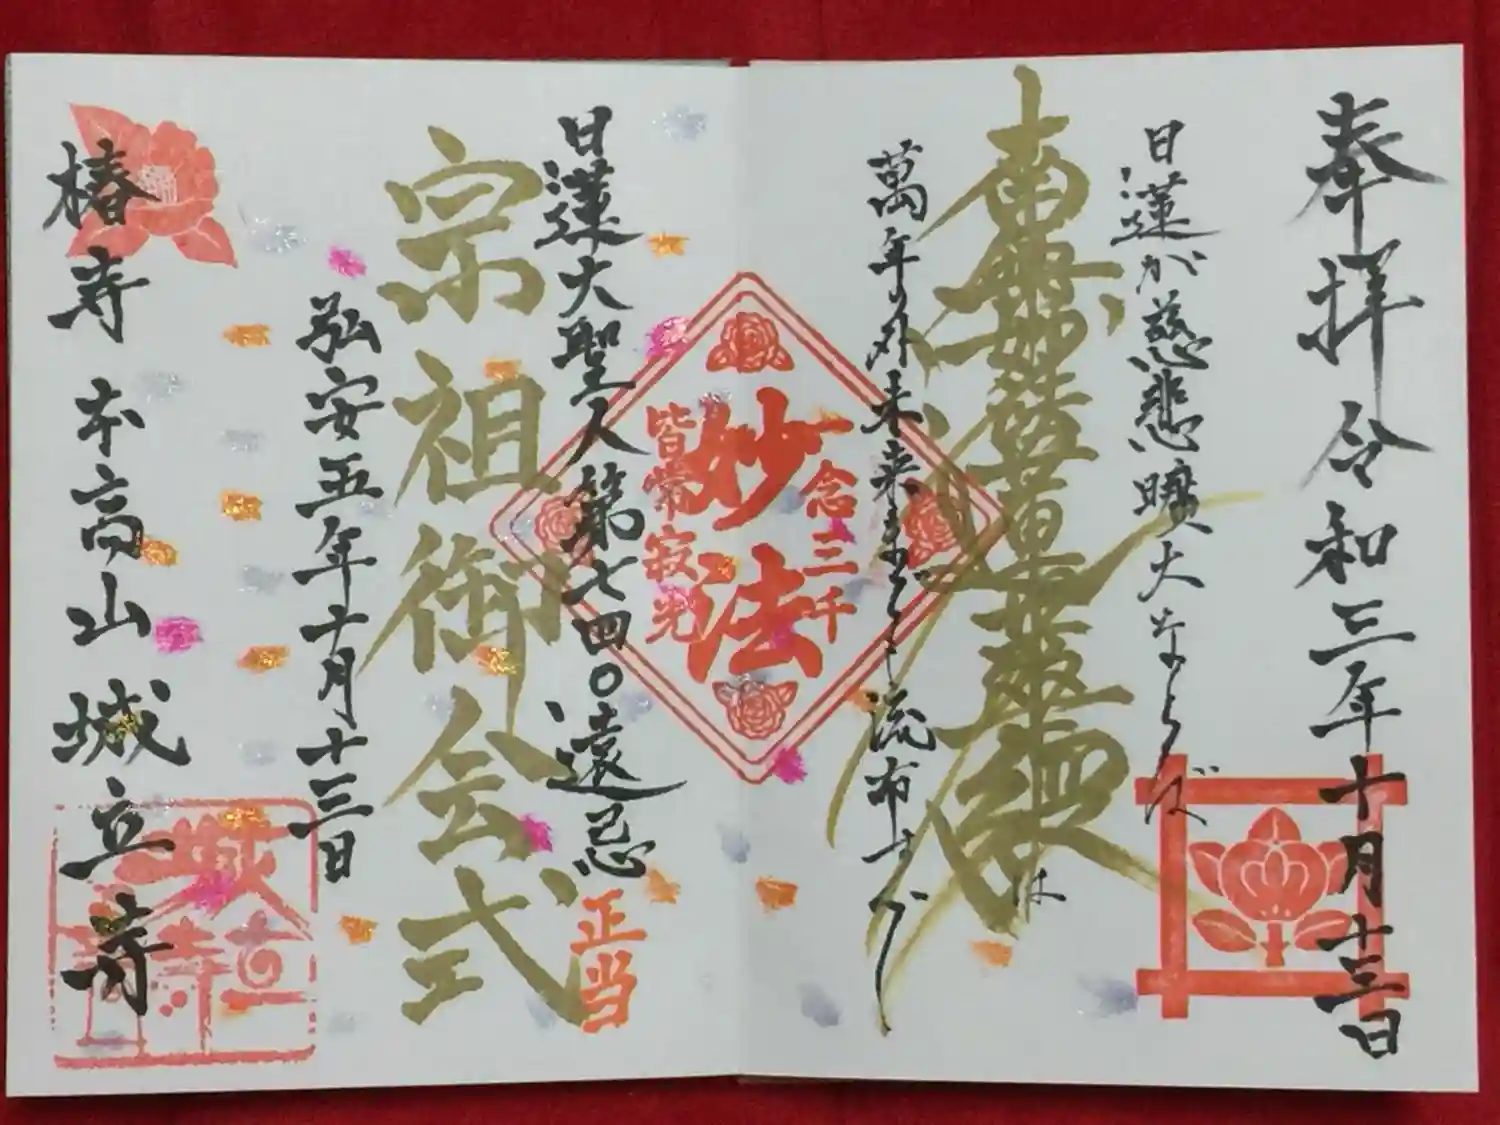 奉拝 令和三年十月十三日
日蓮が慈悲曠大ならば
南無妙法蓮華経は
萬年の外未来までも流布すべし
一念三千
妙法
皆常寂光
日蓮大聖人第七四〇遠忌
正当
宗祖御会式
弘安五年十月十三日
椿寺 本高山城立寺